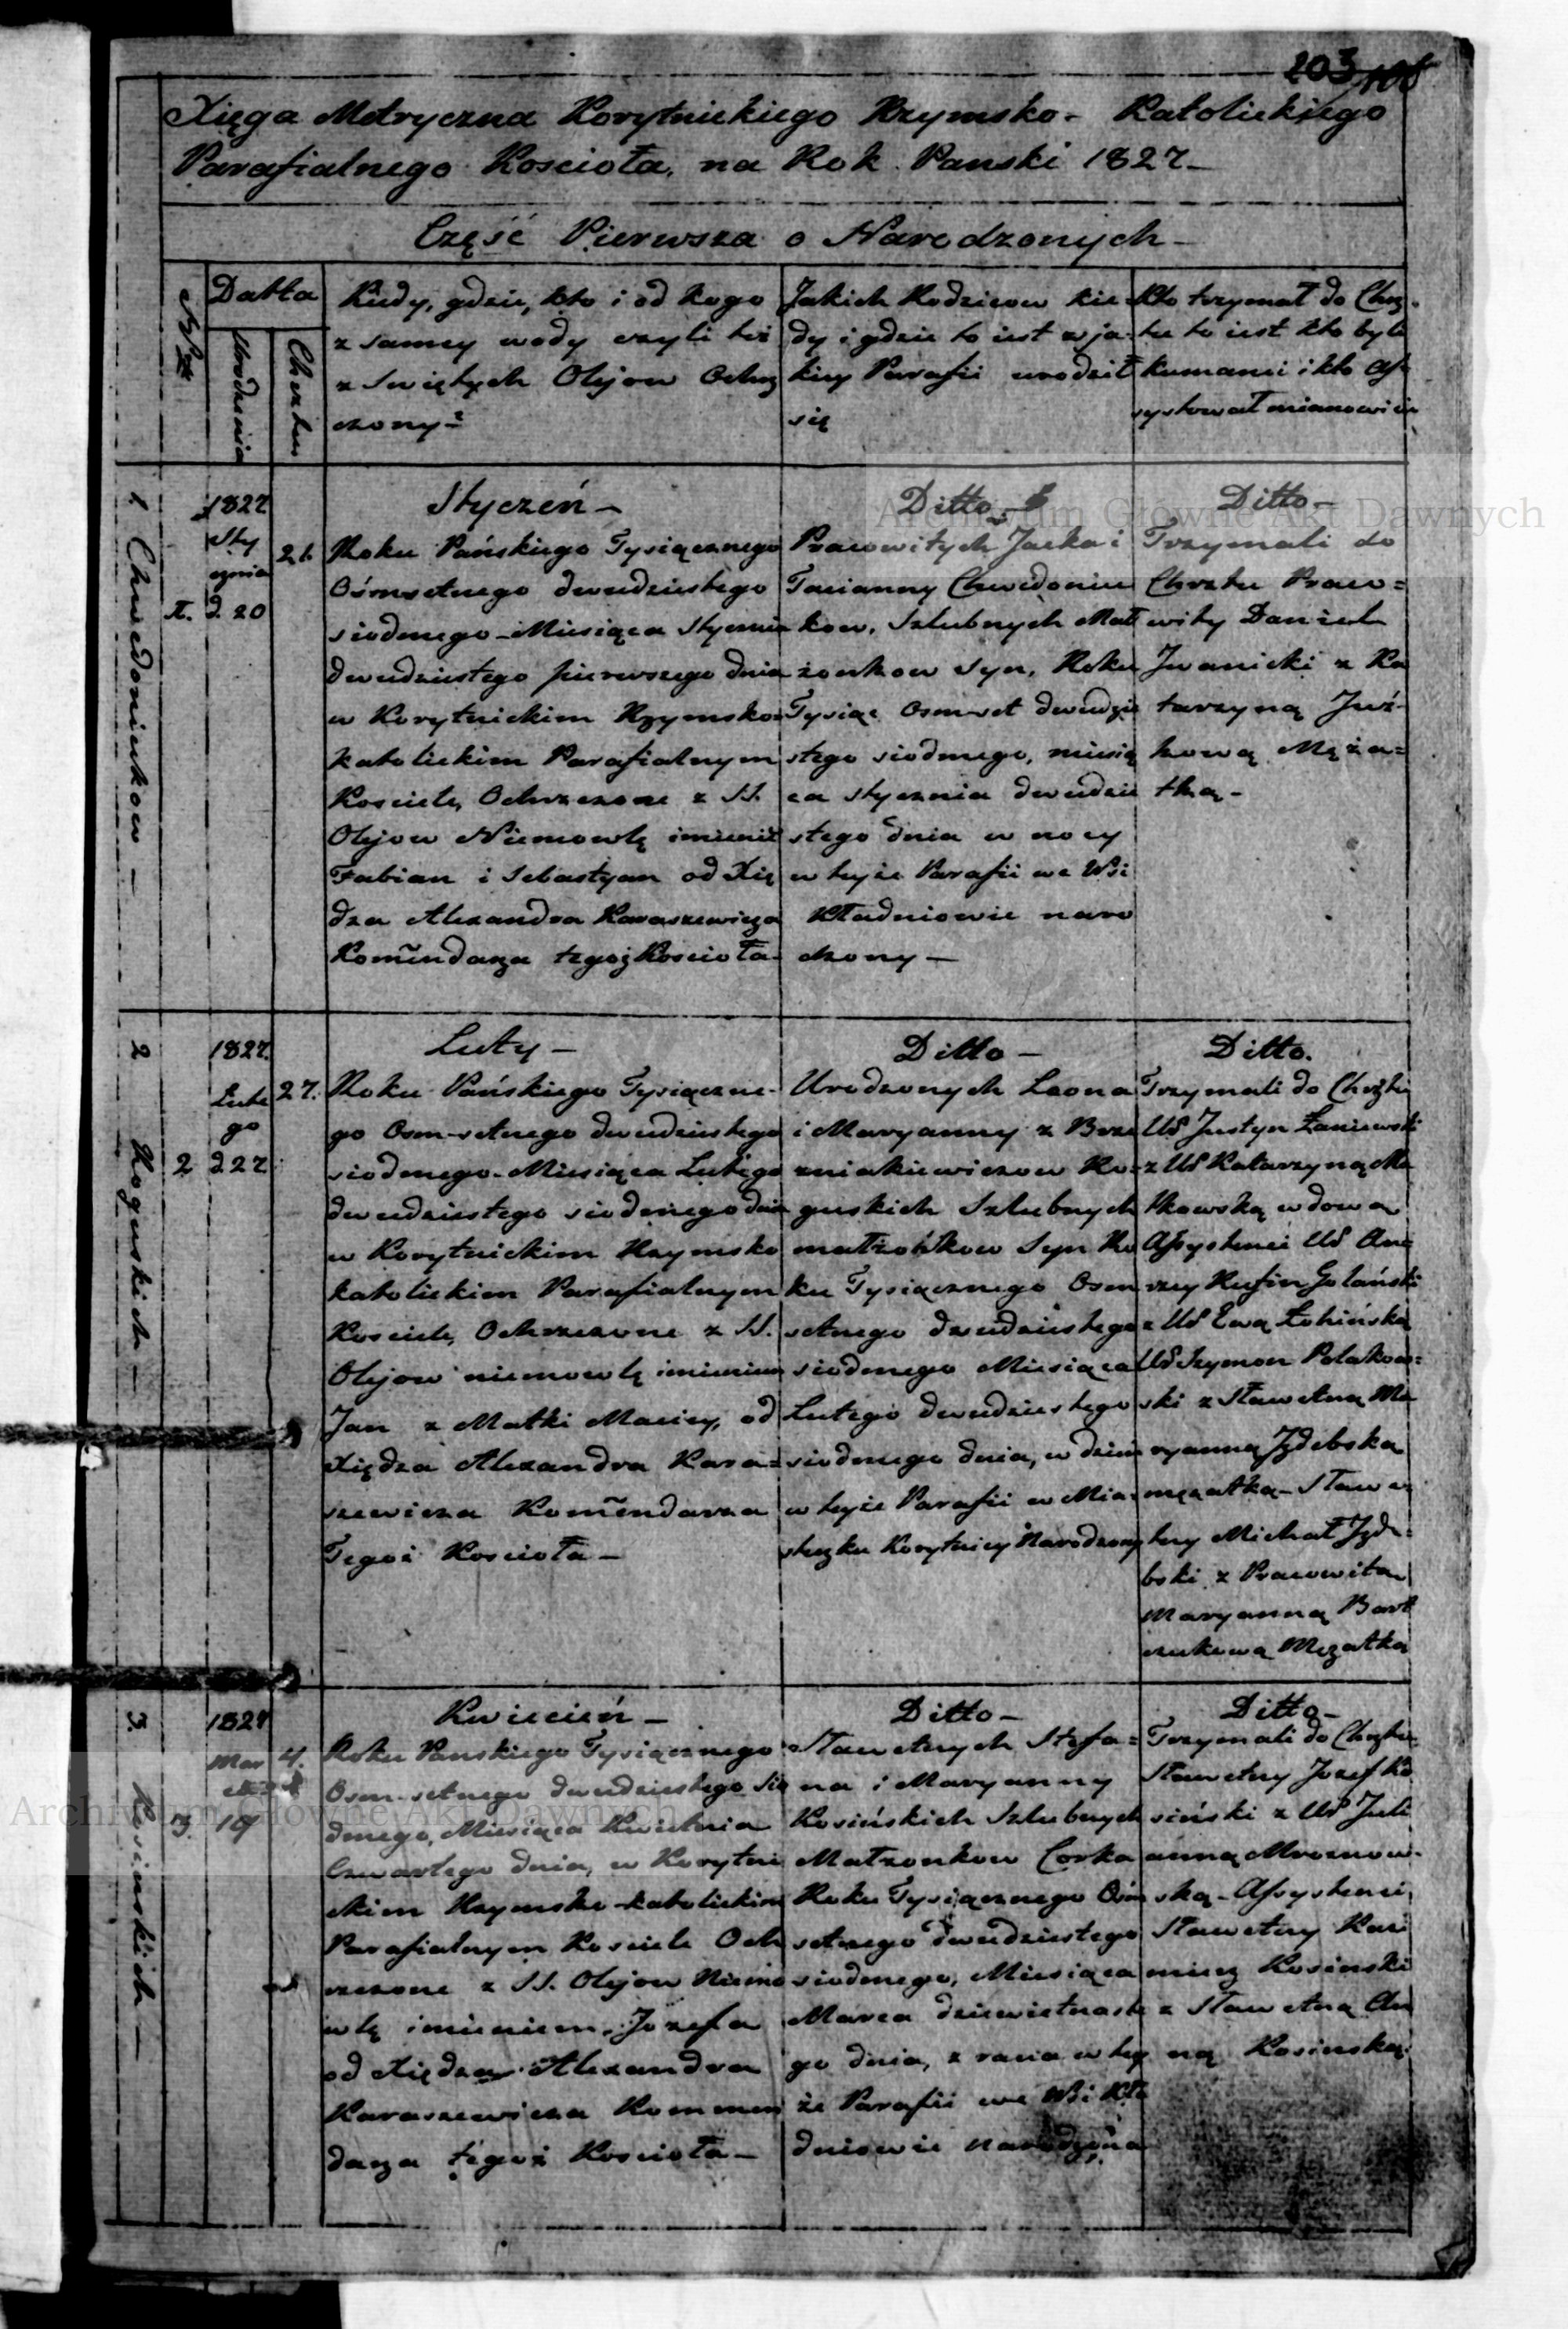 203 108
Xięga Metryczna Korytnickiego Rzymsko- Katolickiego
Parafialnego Kościoła, na Rok Panski 1827–
Część Pierwsza o Narodzonych–
Datta
Urodzenia
Chrztu
Kiedy, gdzie, kto i od kogo
z samey wody czyli też
z Swiętych Olejow Ochrz
czony–
Jakich Rodzicow kie
dy i gdzie to iest w ja-
kiey Parafii urodził
się
Kto trzymał do Chrz-
tu to iest kto byli
kumami i kto As-
systował mianowicie
1. Chwedoniukow –
1.
1827
Sty
cznia
d. 20
21.
Styczeń –
Roku Pańskiego Tysiącznego
Ośmsetnego dwudziestego
siodmego – Miesiąca Stycznia
dwudziestego pierwszego dnia
w Korytnickim Rzymsko=
katolickim Parafialnym
Kosciele, Ochrzczone z SS.
Olejow Niemowlę imieniē
Fabian i Sebastyan od Xię
dza Alexandra Karaszewicza
Komēndarza tegoż Koscioła–
Ditto –
Pracowitych Jacka i
Tacianny Chwedoniu
kow, Szlubnych Mał
żonkow Syn, Roku
Tysiąc Osmset dwudzie
stego siodmego, miesią
ca Stycznia dwudzie
stego dnia w nocy
w teyże Parafii we Wsi
Kładniowie naro
dzony –
Ditto –
Trzymali do
Chrztu Praco=
wity Daniel
Jwanicki z Ka
tarzyną Juź-
kową Męża=
tką –
2 Roguskich –
2
1827.
Lute
go
d 27
27.
Luty –
Roku Pańskiego Tysiączne-
go Osm-setnego dwudziestego
siodmego – Miesiąca Lutego
dwudziestego siodmego dnia
w Korytnickim Rzymsko
katolickim Parafialnym
Kosciele, Ochrzczone z SS.
Olejow niemowlę imieniem
Jan z Matki Maciey, od
Xiędza Alexandra Kara=
szewicza Komēndarza
Tegoż Koscioła –
Ditto –
Urodzonych Leona
i Maryanny z Brze
zniakiewiczow Ro-
guskich Szlubnych
małżonkow Syn Ro
ku Tysiącznego Osm
setnego dwudziestego
siodmego Miesiąca
Lutego dwudziestego
siodmego dnia, w dzień
w teyże Parafii w Mia-
steczku Korytnicy Narodzony
Ditto.
Trzymali do Chrztu
Ur Justyn Łaniewski
z Ur Katarzyną Ma
łkowską wdową
Assystenci Ur An=
rzey Rufin Golański
z Ur Ewą Łobińską
Ur Szymon Polakow=
ski z Sławetną Ma
ryanną Jzdebską
mężatką – Sławe
tny Michał Jzde-
bski z Pracowitą
Maryanną Bart
czukową Mężatką
3. Kosinskich –
3.
1827
Mar
ca
19
4.
Kwiecień –
Roku Panskiego Tysiącznego
Osm-setnego dwudziestego sio
dmego, Miesiąca Kwietnia
Czwartego dnia, w Korytni
ckim Rzymsko-katolickim
Parafialnym Kosciele Och
rzczone z SS. Olejow Niemo
wlę imieniem Jozefa
od Xiędza Alexandra
Karaszewicza Kommen
darza tegoż Koscioła –
Ditto –
Sławetnych Stefa=
na i Maryanny
Kosińskich Szlubnych
Małżonkow Corka
Roku Tysiącznego Ośm
setnego dwudziestego
siodmego, Miesiąca
Marca dziewietnaste
go dnia, z rana w tey
że Parafii we Wsi Kła
dniowie narodzona
Ditto –
Trzymali do Chrztu
Sławetny Jozef Ko
siński z Ur Juli
anną Mroznow-
ską – Assystenci,
Sławetny Kazi
mierz Kosinski
z Sławetną An
ną Kosinską.
Archiwum Główne Akt Dawnych
Archiwum Główne Akt Dawnych